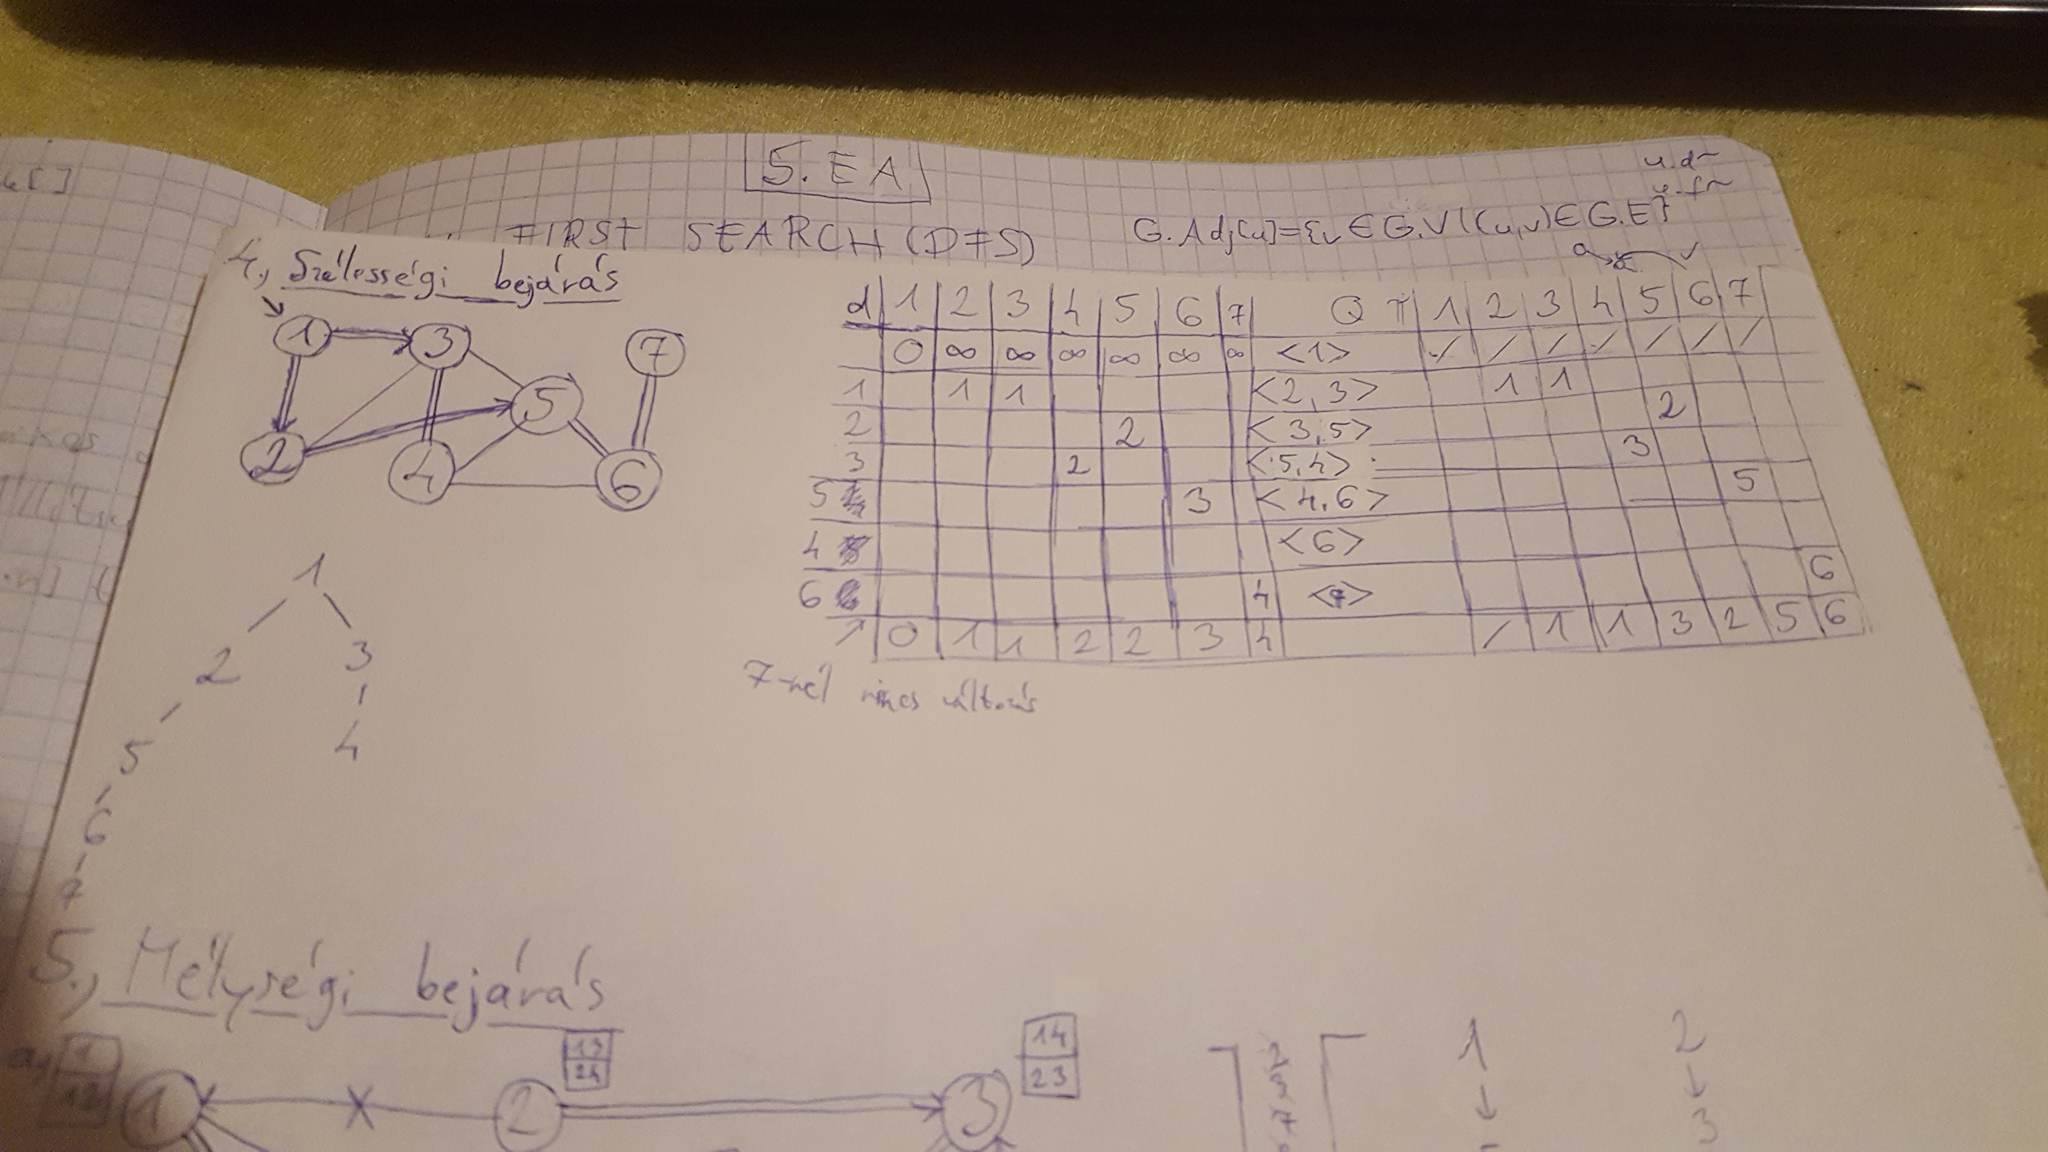 5. EA
FIRST SEARCH (DFS)
u.d~
u.f~
G.Adj[u]={v∈G.V|(u,v)∈G.E}
4., Szélességi bejárás
1 3 7
5
2 4 6
d 1 2 3 4 5 6 7 Q π 1 2 3 4 5 6 7
0 ∞ ∞ ∞ ∞ ∞ ∞ <1> / / / / / / /
1 1 1 <2,3> 1 1
2 2 <3,5> 2
3 2 <5,4> 3
5 3 <4,6> 5
4 <6>
6 4 <7> 6
0 1 1 2 2 3 4 / 1 1 3 2 5 6
7-nél nincs változás
1
2 3
5 4
6
7
5., Mélységi bejárás
a,
1
12
1
13
24
2
14
23
3
1 2
3